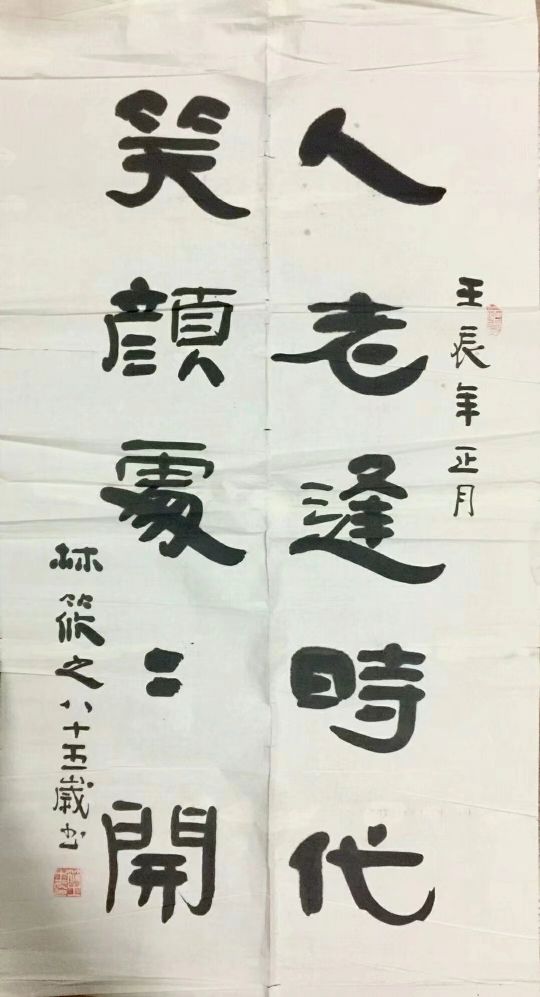 壬辰年正月
人老逢時代
笑顔處〻開
林筱之八十五歲书